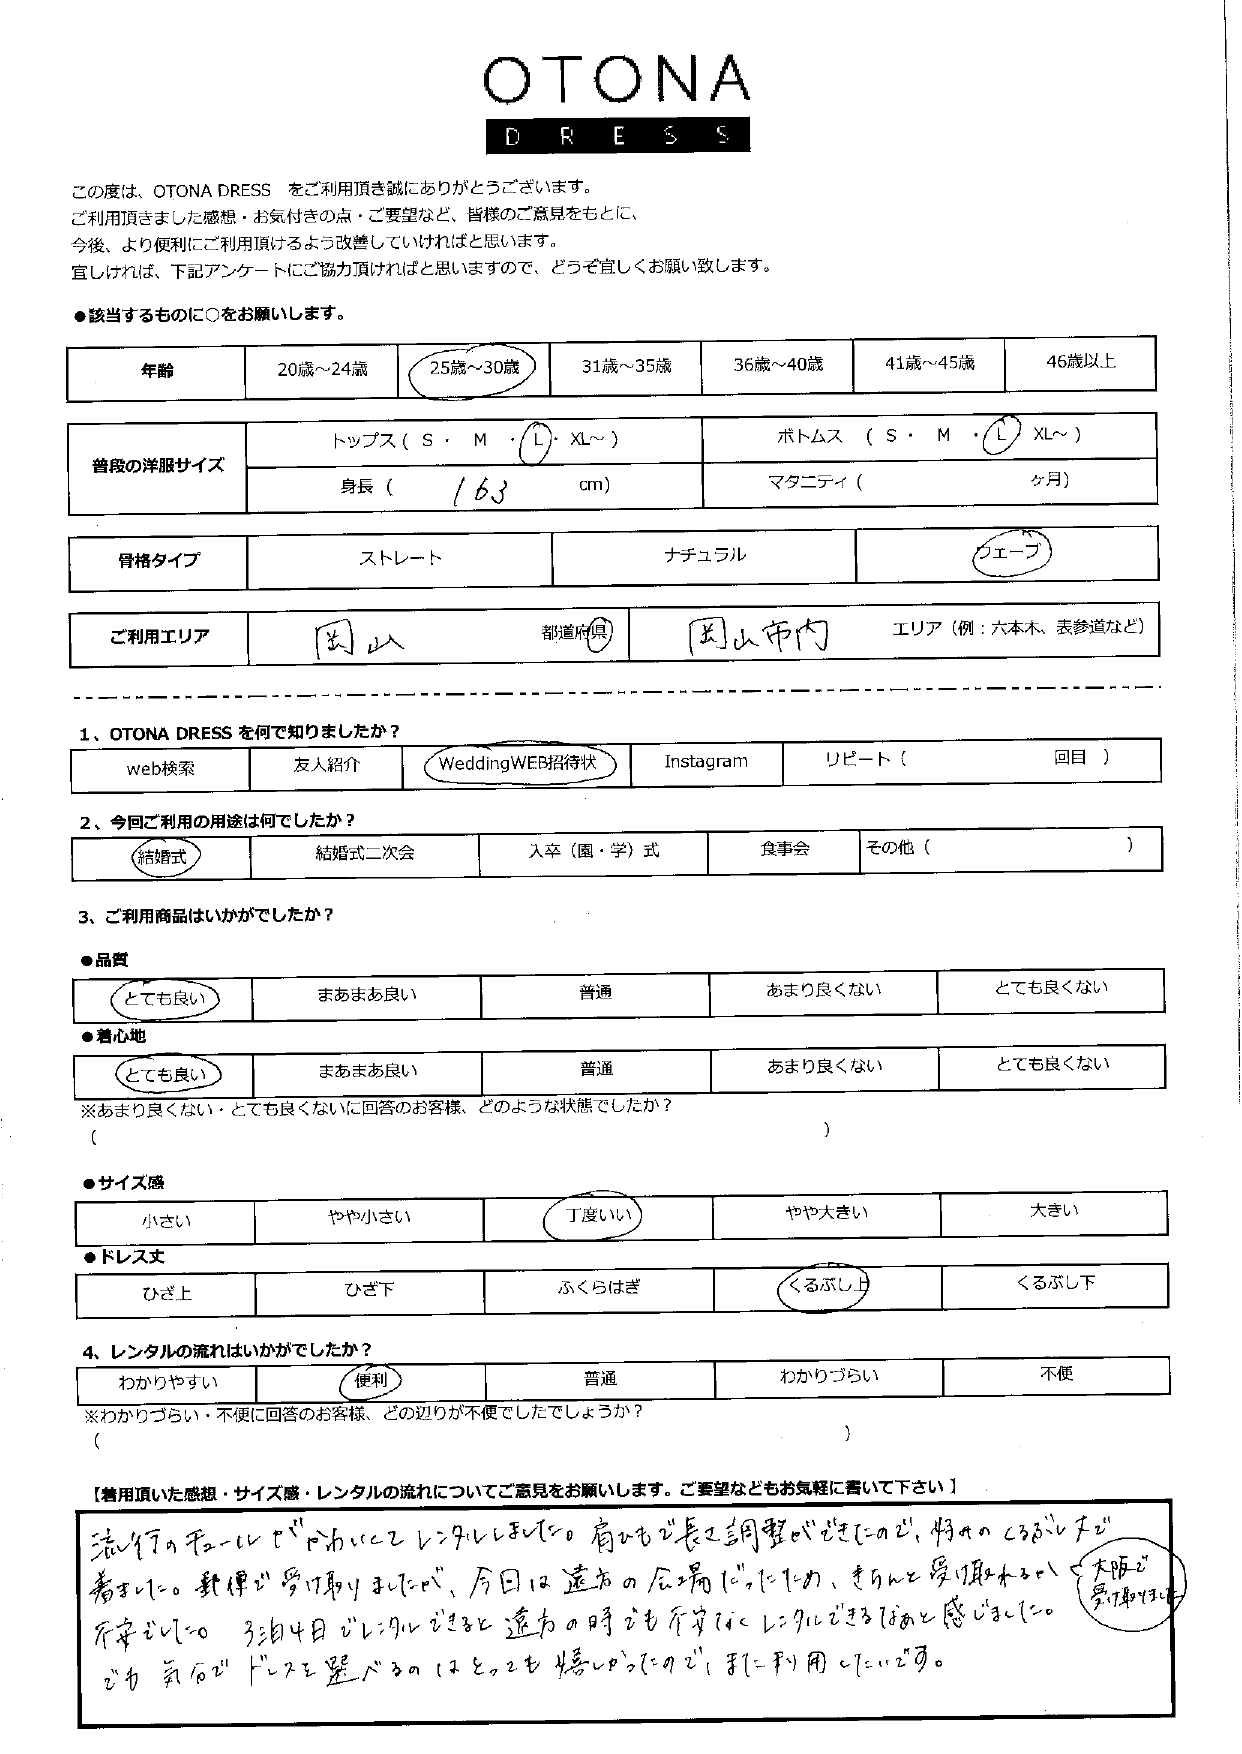 OTONA
DRESS
この度は、OTONA DRESS をご利用頂き誠にありがとうございます。
ご利用頂きました感想・お気付きの点・ご要望など、皆様のご意見をもとに、
今後、より便利にご利用頂けるよう改善していければと思います。
宜しければ、下記アンケートにご協力頂ければと思いますので、どうぞ宜しくお願い致します。
●該当するものに○をお願いします。
年齢 20歳～24歳 25歳～30歳 31歳～35歳 36歳～40歳 41歳～45歳 46歳以上
普段の洋服サイズ トップス ( S ・ M ・ L ・ XL～ ) ボトムス ( S ・ M ・ L XL～ )
身長 ( 163 cm) マタニティ ( ヶ月)
骨格タイプ ストレート ナチュラル ウェーブ
ご利用エリア 岡山 都道府県 岡山市内 エリア（例：六本木、表参道など）
1、OTONA DRESS を何で知りましたか？
web検索 友人紹介 WeddingWEB招待状 Instagram リピート ( 回目 )
2、今回ご利用の用途は何でしたか？
結婚式 結婚式二次会 入卒（園・学）式 食事会 その他 ( )
3、ご利用商品はいかがでしたか？
●品質
とても良い まあまあ良い 普通 あまり良くない とても良くない
●着心地
とても良い まあまあ良い 普通 あまり良くない とても良くない
※あまり良くない・とても良くないに回答のお客様、どのような状態でしたか？
( )
●サイズ感
小さい やや小さい 丁度いい やや大きい 大きい
●ドレス丈
ひざ上 ひざ下 ふくらはぎ くるぶし上 くるぶし下
4、レンタルの流れはいかがでしたか？
わかりやすい 便利 普通 わかりづらい 不便
※わかりづらい・不便に回答のお客様、どの辺りが不便でしたでしょうか？
( )
【着用頂いた感想・サイズ感・レンタルの流れについてご意見をお願いします。ご要望などもお気軽に書いて下さい】
流行のチュールがかわいくてレンタルしました。肩ひもで長さ調整ができたので、好みのくるぶしまで
着ました。郵便で受け取りましたが、今回は遠方の会場だったため、きちんと受け取れるか
大阪で
受け取りました
不安でした。3泊4日でレンタルできると遠方の時でも不安なくレンタルできるなあと感じました。
でも気分でドレスを選べるのはとっても嬉しかったので、また利用したいです。